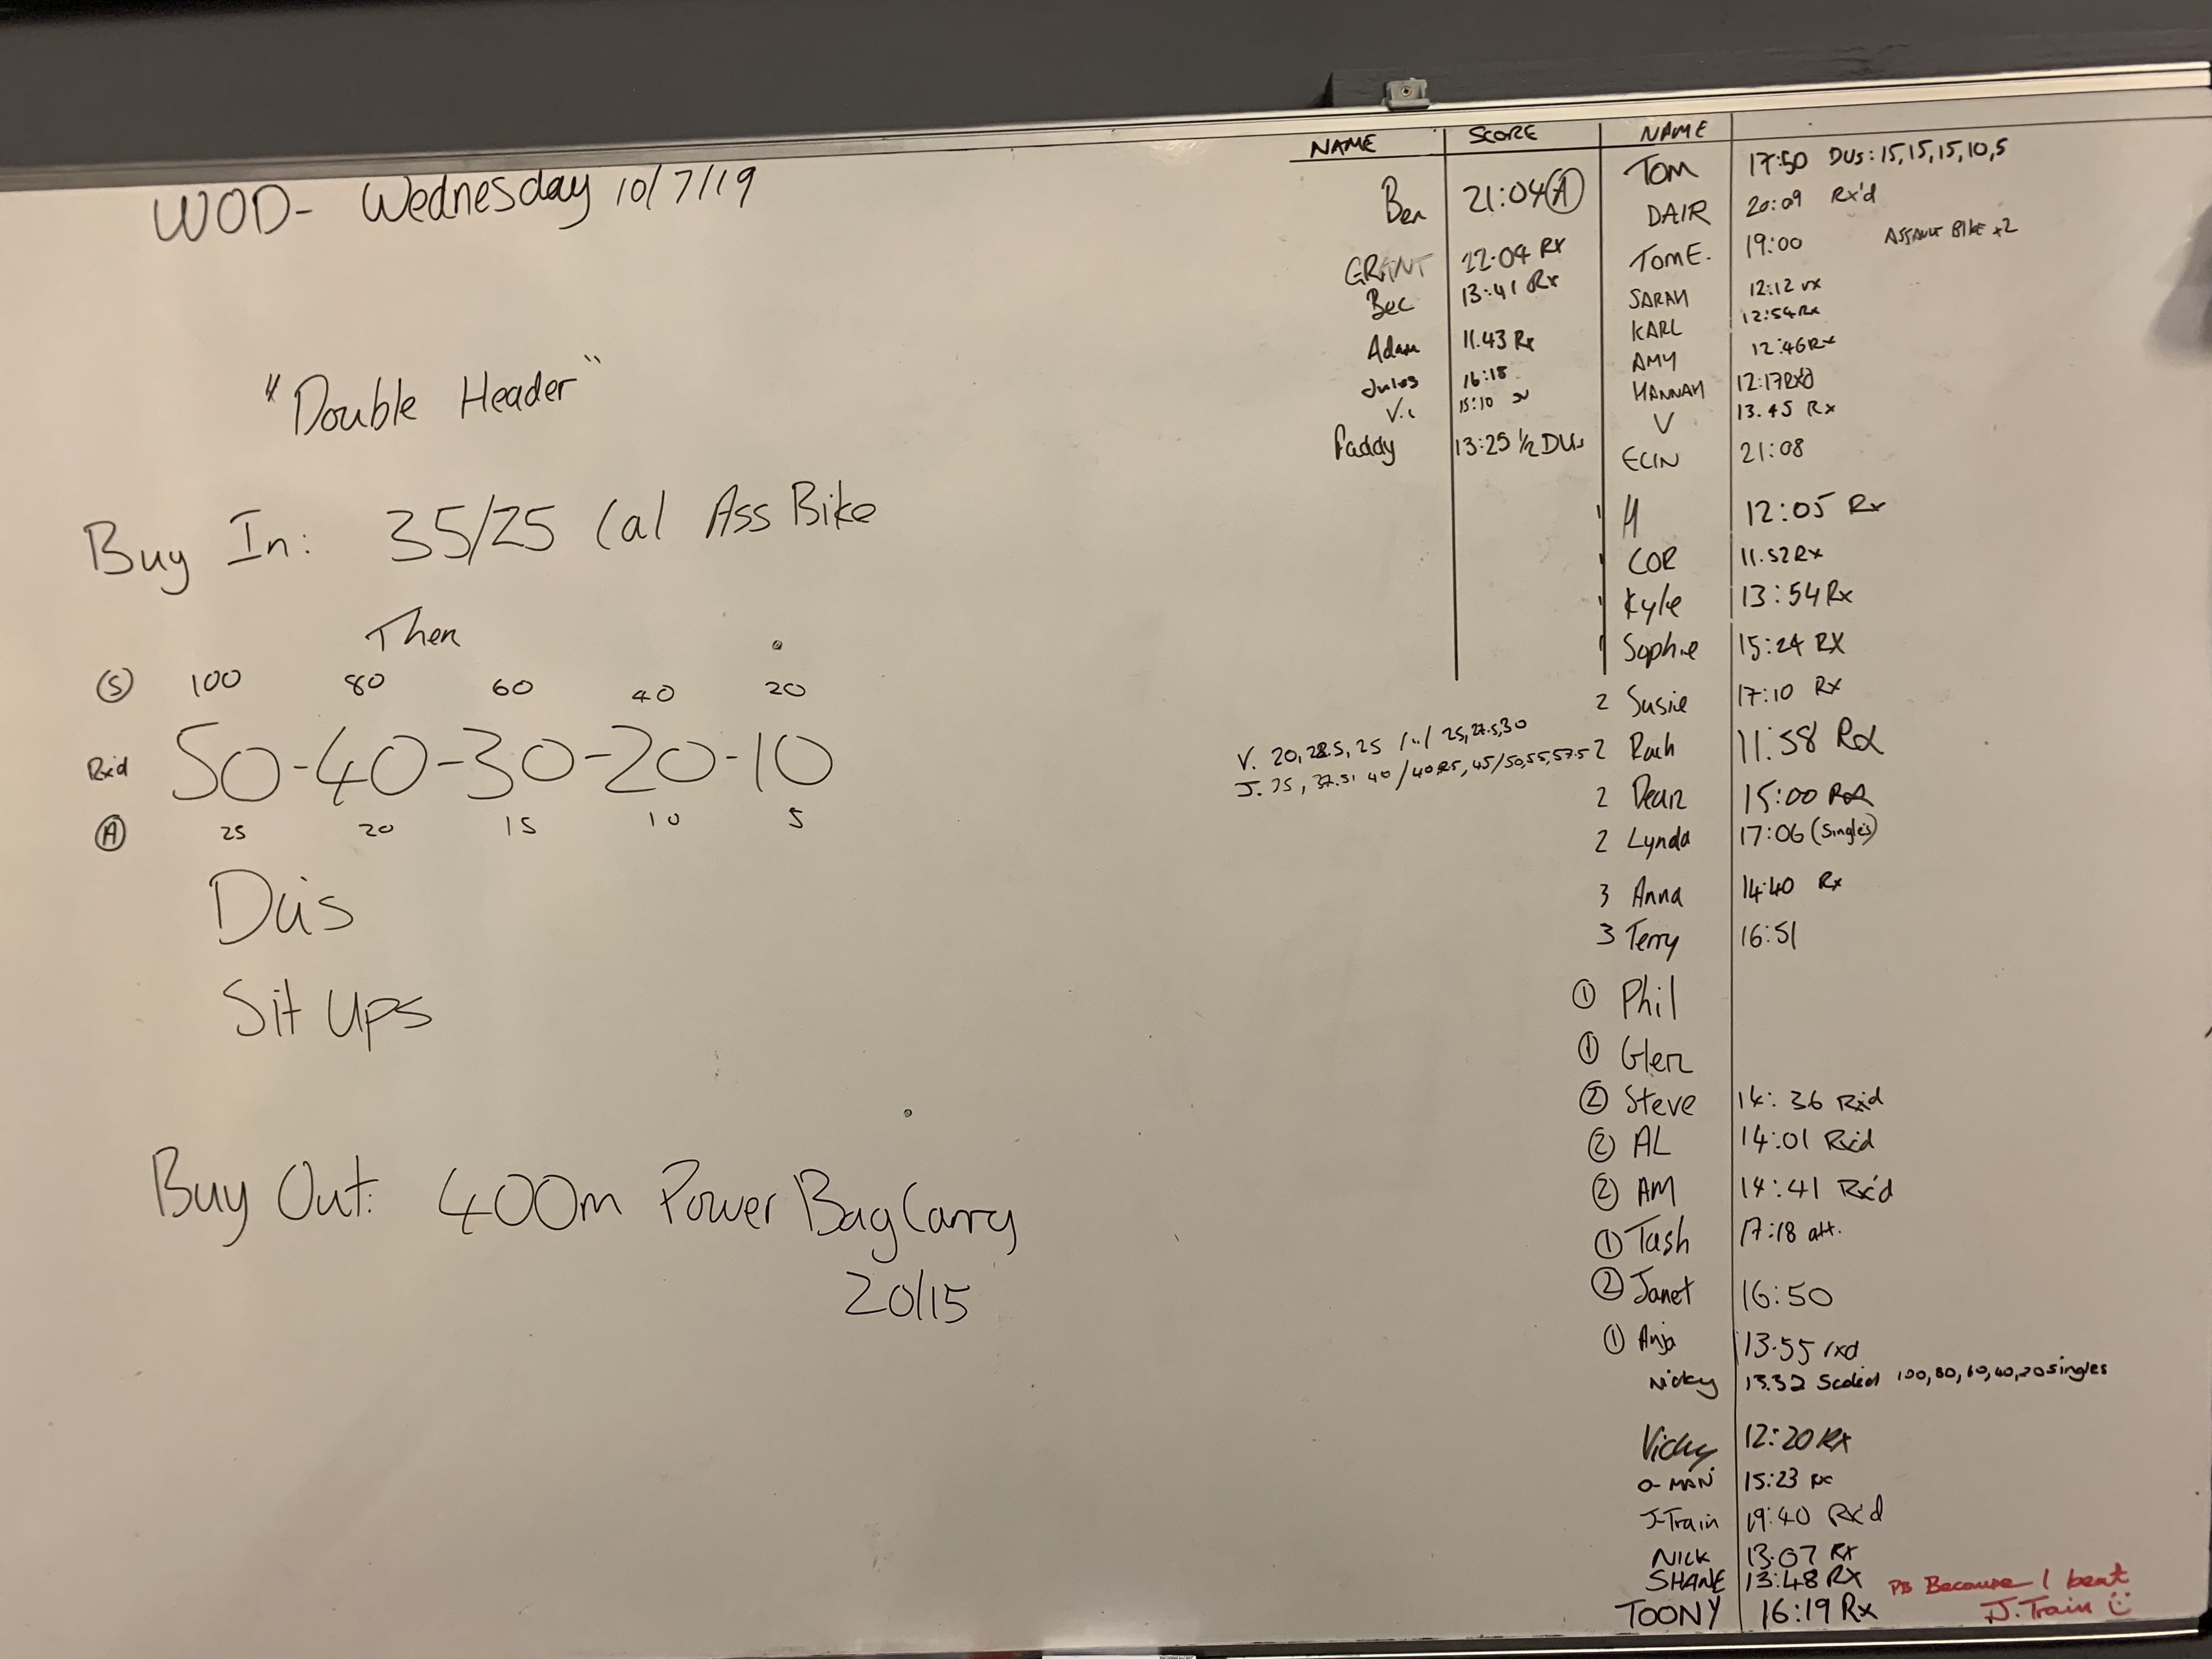 WOD- Wednesday 10/7/19
"Double Header"
Buy In: 35/25 Cal Ass Bike
Then
(S) 100 80 60 40 20
Rx'd 50-40-30-20-10
(A) 25 20 15 10 5
Du's
Sit Ups
Buy Out: 400m Power Bag Carry
20/15
NAME SCORE
Ben 21:04 (A)
GRANT 22.04 RX
Bec 13:41 Rx
Adam 11.43 Rx
Jules 16:18
V. 15:10
Paddy 13:25 1/2 DUs
V. 20, 22.5, 25 /../ 25, 27.5, 30
J. 35, 37.5, 40 / 40, 45 / 50, 55, 57.5
NAME
TOM 17:50 DUs: 15, 15, 15, 10, 5
DAIR 20:09 Rx'd
TOM E. 19:00 ASSAULT BIKE x2
SARAH 12:12 rx
KARL 12:54 Rx
AMY 12:46 Rx
HANNAH 12:17 Rx'd
V 13.45 Rx
ECIN 21:08
H 12:05 Rx
COR 11.52 Rx
Kyle 13:54 Rx
Sophie 15:24 RX
2 Susie 17:10 RX
2 Rach 11:58 Rx
2 Dean 15:00 Rx
2 Lynda 17:06 (Singles)
3 Anna 14:40 Rx
3 Terry 16:51
① Phil
① Glen
② Steve 14:36 Rx'd
② AL 14:01 Rx'd
② AM 14:41 Rx'd
① Tash 17:18 att.
② Janet 16:50
① Anja 13.55 rxd
Nicky 13.32 Scaled 100, 80, 60, 40, 20 singles
Vicky 12:20 RX
O-MAN 15:23 RX
J-Train 19:40 Rx'd
NICK 13.07 RX
SHANE 13:48 RX
TOONY 16:19 Rx PB Because I beat
J.Train